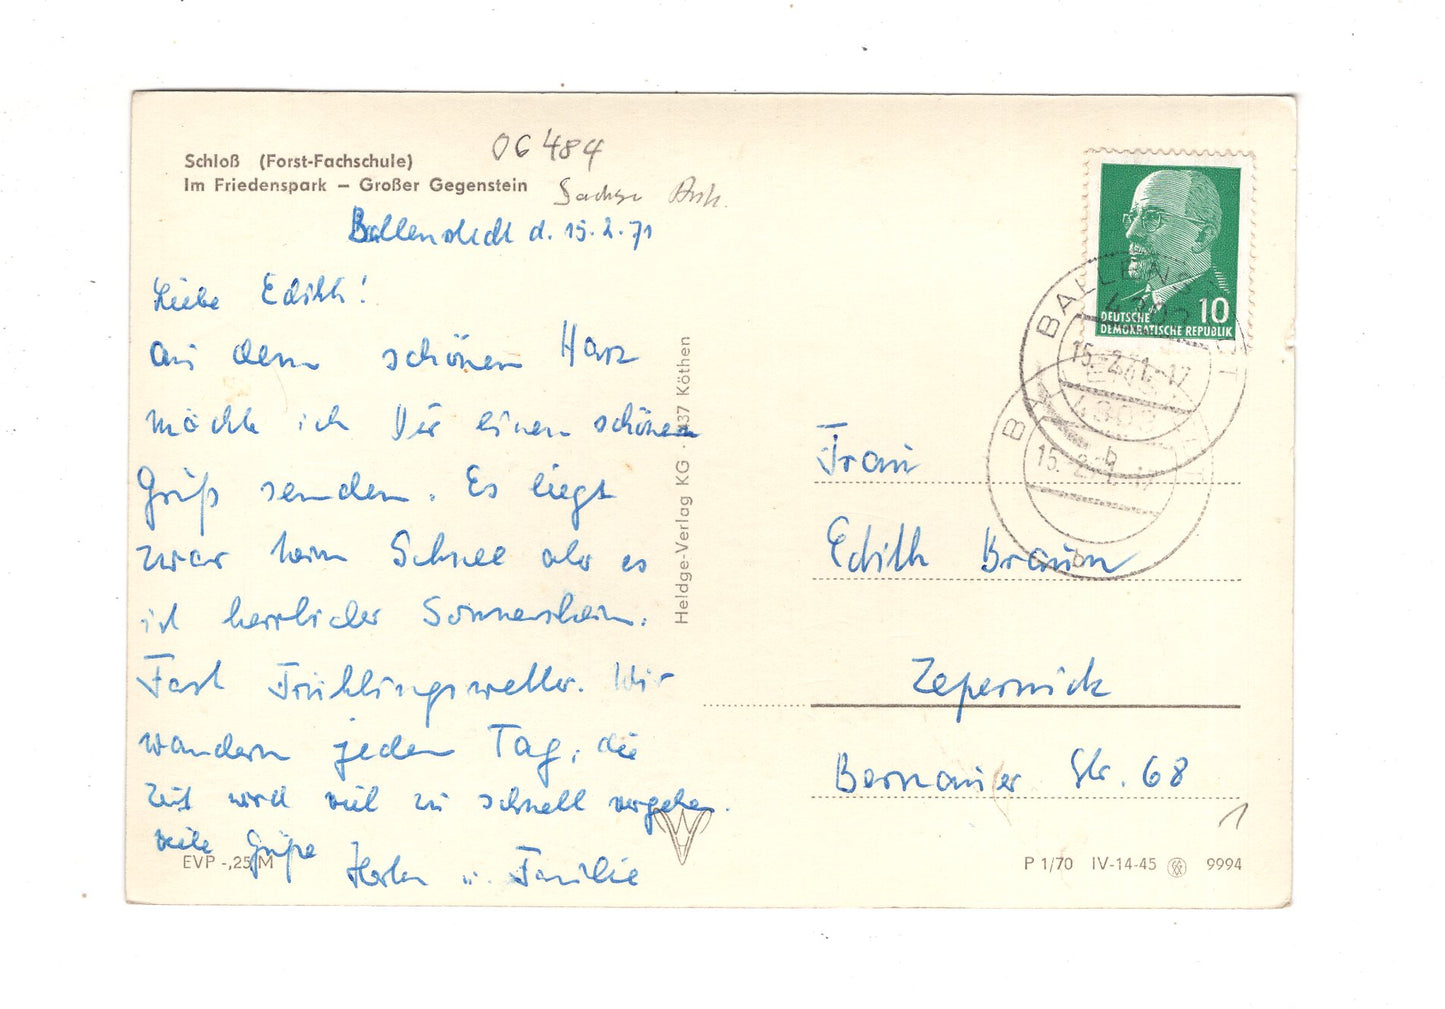 Schloß (Forst-Fachschule)
Im Friedenspark – Großer Gegenstein
06484
Sachse Anh.
Ballenstedt d. 15.2.71
Liebe Edith!
Aus dem schönen Harz
möchte ich Dir einen schönen
Gruß senden. Es liegt
zwar kein Schnee aber es
ist herrlicher Sonnenschein.
Fast Frühlingswetter. Wir
wandern jeden Tag, die
Zeit wird viel zu schnell vergehen.
Viele Grüße
u. Familie
EVP -,25 M
Heldge-Verlag KG · 437 Köthen
10
DEUTSCHE
DEMOKRATISCHE REPUBLIK
BALLENSTEDT
15.2.71.-17
b
Frau
Edith Braun
Zepernick
Bernauer Str. 68
1
P 1/70 IV-14-45 9994